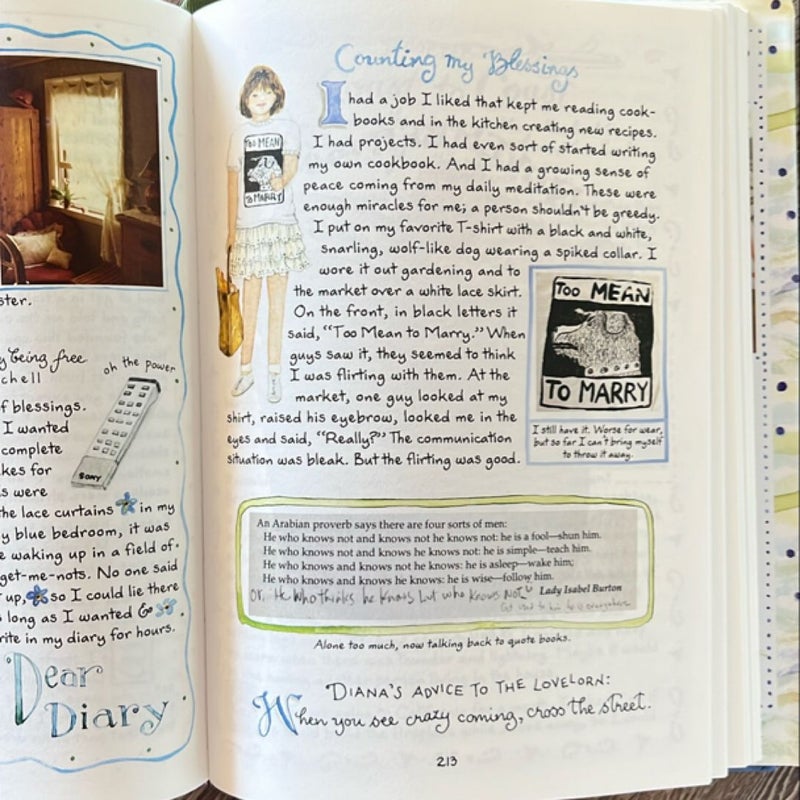 ster.
y being free
chell
oh the power
SONY
f blessings.
I wanted
complete
kes for
s were
the lace curtains in my
y blue bedroom, it was
e waking up in a field of
get-me-nots. No one said
up, so I could lie there
s long as I wanted &
rite in my diary for hours.
Dear
Diary
Counting my Blessings
I had a job I liked that kept me reading cook-
books and in the kitchen creating new recipes.
I had projects. I had even sort of started writing
my own cookbook. And I had a growing sense of
peace coming from my daily meditation. These were
enough miracles for me; a person shouldn't be greedy.
I put on my favorite T-shirt with a black and white,
snarling, wolf-like dog wearing a spiked collar. I
wore it out gardening and to
the market over a white lace skirt.
On the front, in black letters it
said, "Too Mean to Marry." When
guys saw it, they seemed to think
I was flirting with them. At the
market, one guy looked at my
shirt, raised his eyebrow, looked me in the
eyes and said, "Really?" The communication
situation was bleak. But the flirting was good.
TOO MEAN
TO MARRY
TOO MEAN
TO MARRY
I still have it. Worse for wear,
but so far I can't bring myself
to throw it away.
An Arabian proverb says there are four sorts of men:
He who knows not and knows not he knows not: he is a fool—shun him.
He who knows not and knows he knows not: he is simple—teach him.
He who knows and knows not he knows: he is asleep—wake him;
He who knows and knows he knows: he is wise—follow him.
Lady Isabel Burton
or, He who thinks he knows but who knows NOT
Get used to him he is everywhere
Alone too much, now talking back to quote books.
DIANA'S ADVICE TO THE LOVELORN:
When you see crazy coming, cross the street.
213